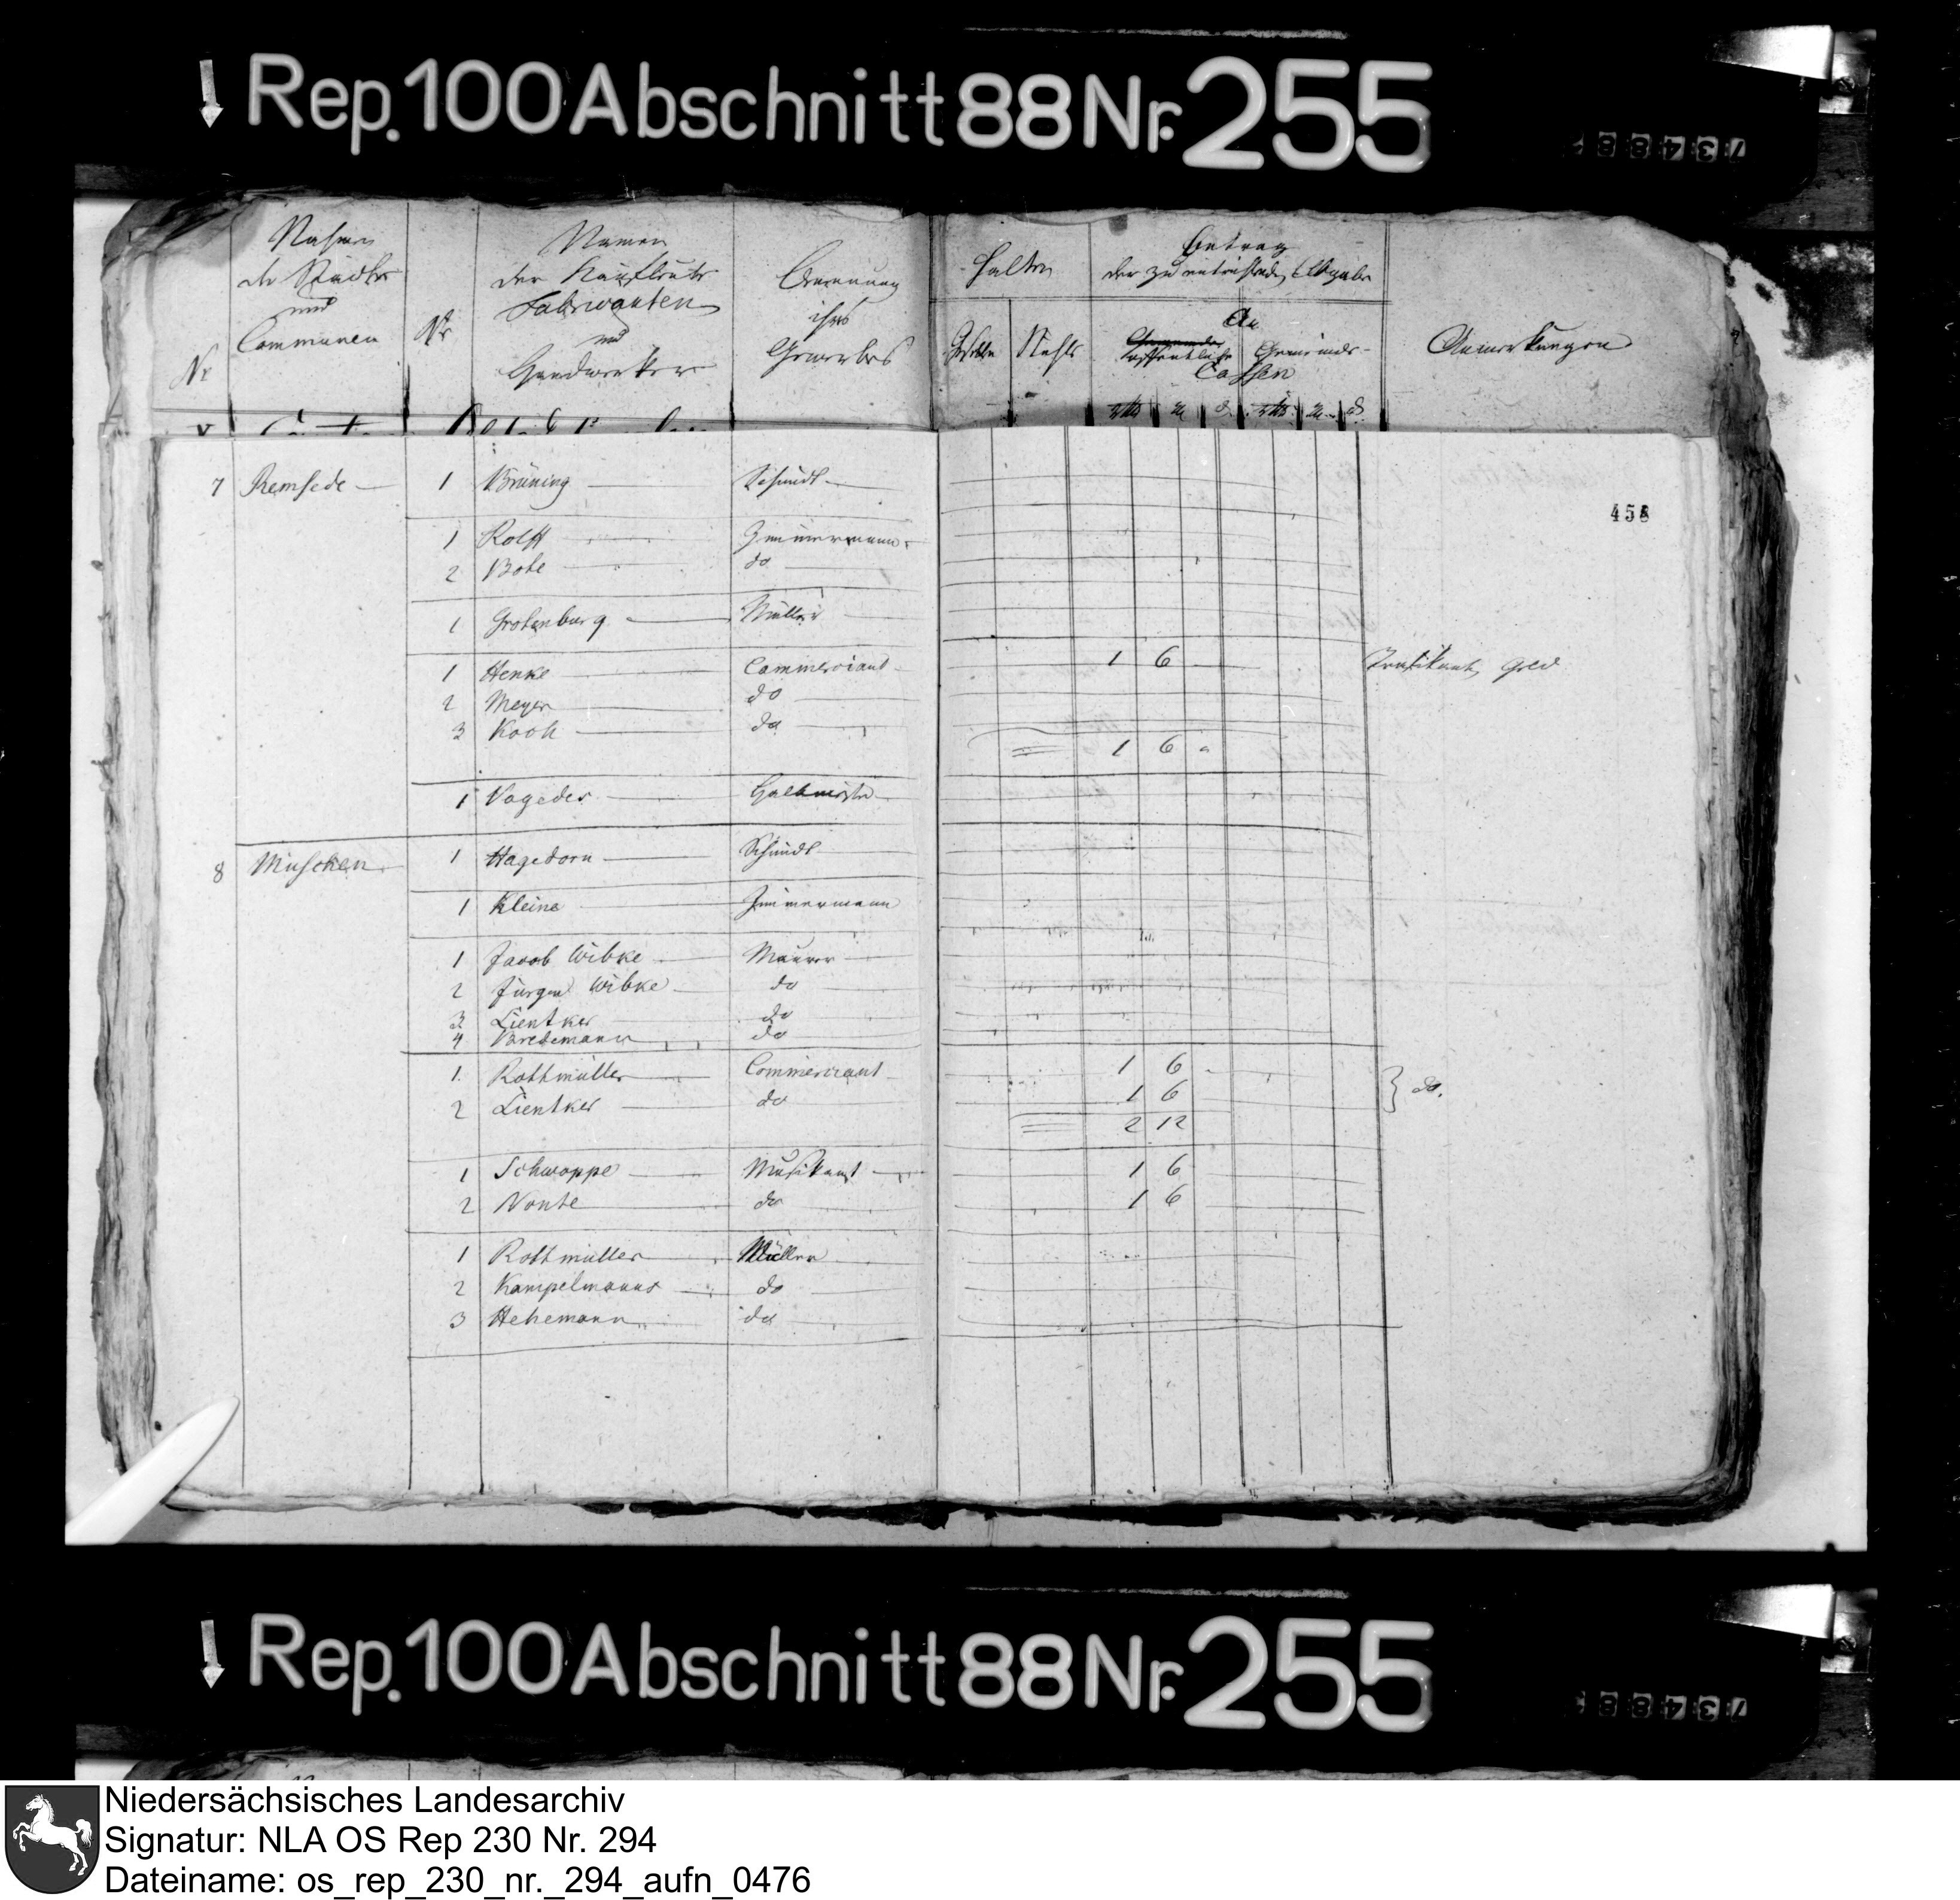 Rep. 100 Abschnitt 88 Nr. 255
734887
Nr
Nahmen
der Städte
und
Communen
Nr
Namen
der Kaufleute
Fabricanten
und
Handwerker
Benennung
ihres
Gewerbes
Halten
Gesellen
Betrag
der zu entrichtenden Abgabe
An
oeffentliche Gemeinde-
Cassen
Anmerkungen
458
7 Remsede 1 Brüning Schmidt
1 Rolff Zimmermann
2 Bote do
1 Grotenburg Müller
1 Henke Commerciant 1 6 Gold
2 Meyer do
3 Koch do
1 6
1 Vagedes
8 Muschen 1 Hagedorn Schmidt
1 Kleine Zimmermann
1 Jacob Wibke Maurer
2 Jürgen Wibke do
3 Lientker do
4 Bredemann do
1 Rottmüller Commerciant 1 6
2 Lientker do 1 6 } do.
2 12
1 Schwoppe Musikant 1 6
2 Nonte do 1 6
1 Rottmüller Müller
2 Kampelmanns do
3 Hehemann do
Rep. 100 Abschnitt 88 Nr. 255
734887
Niedersächsisches Landesarchiv
Signatur: NLA OS Rep 230 Nr. 294
Dateiname: os_rep_230_nr._294_aufn_0476